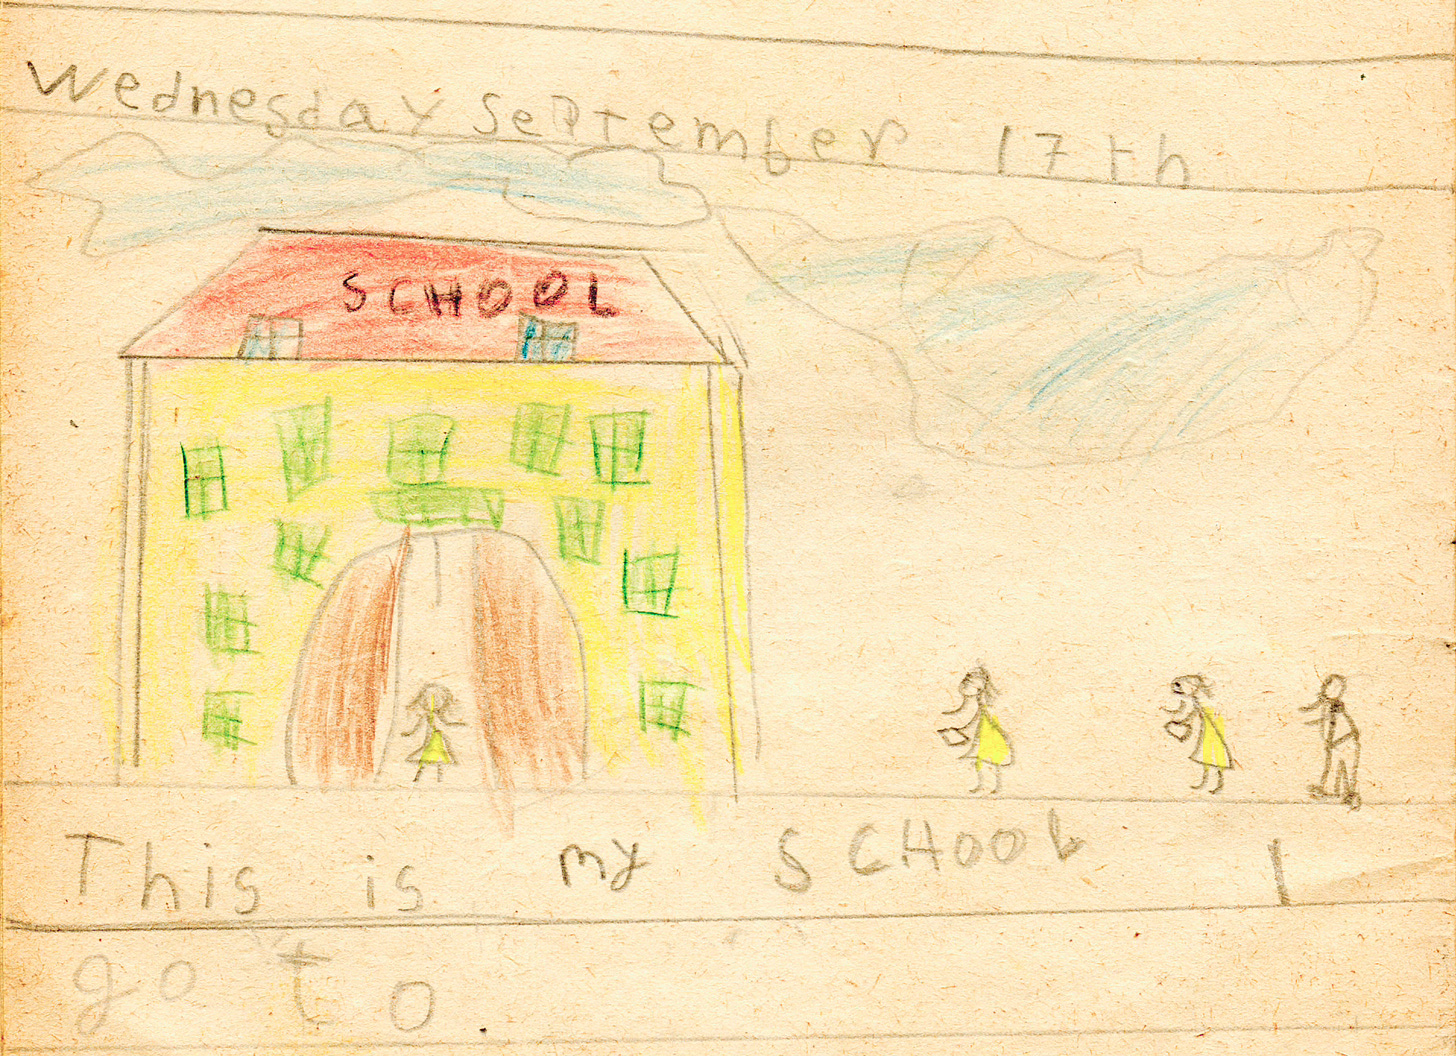 Wednesday September 17th
SCHOOL
This is my SCHOOL I
go to